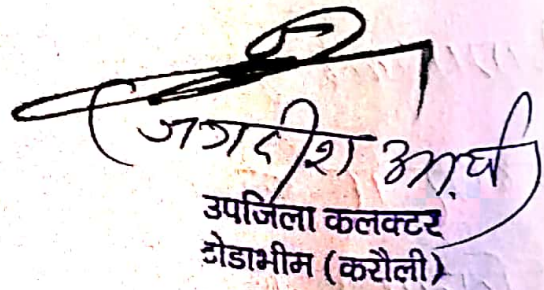 (जगदीश आर्य)
उपजिला कलक्टर
टोडाभीम (करौली)